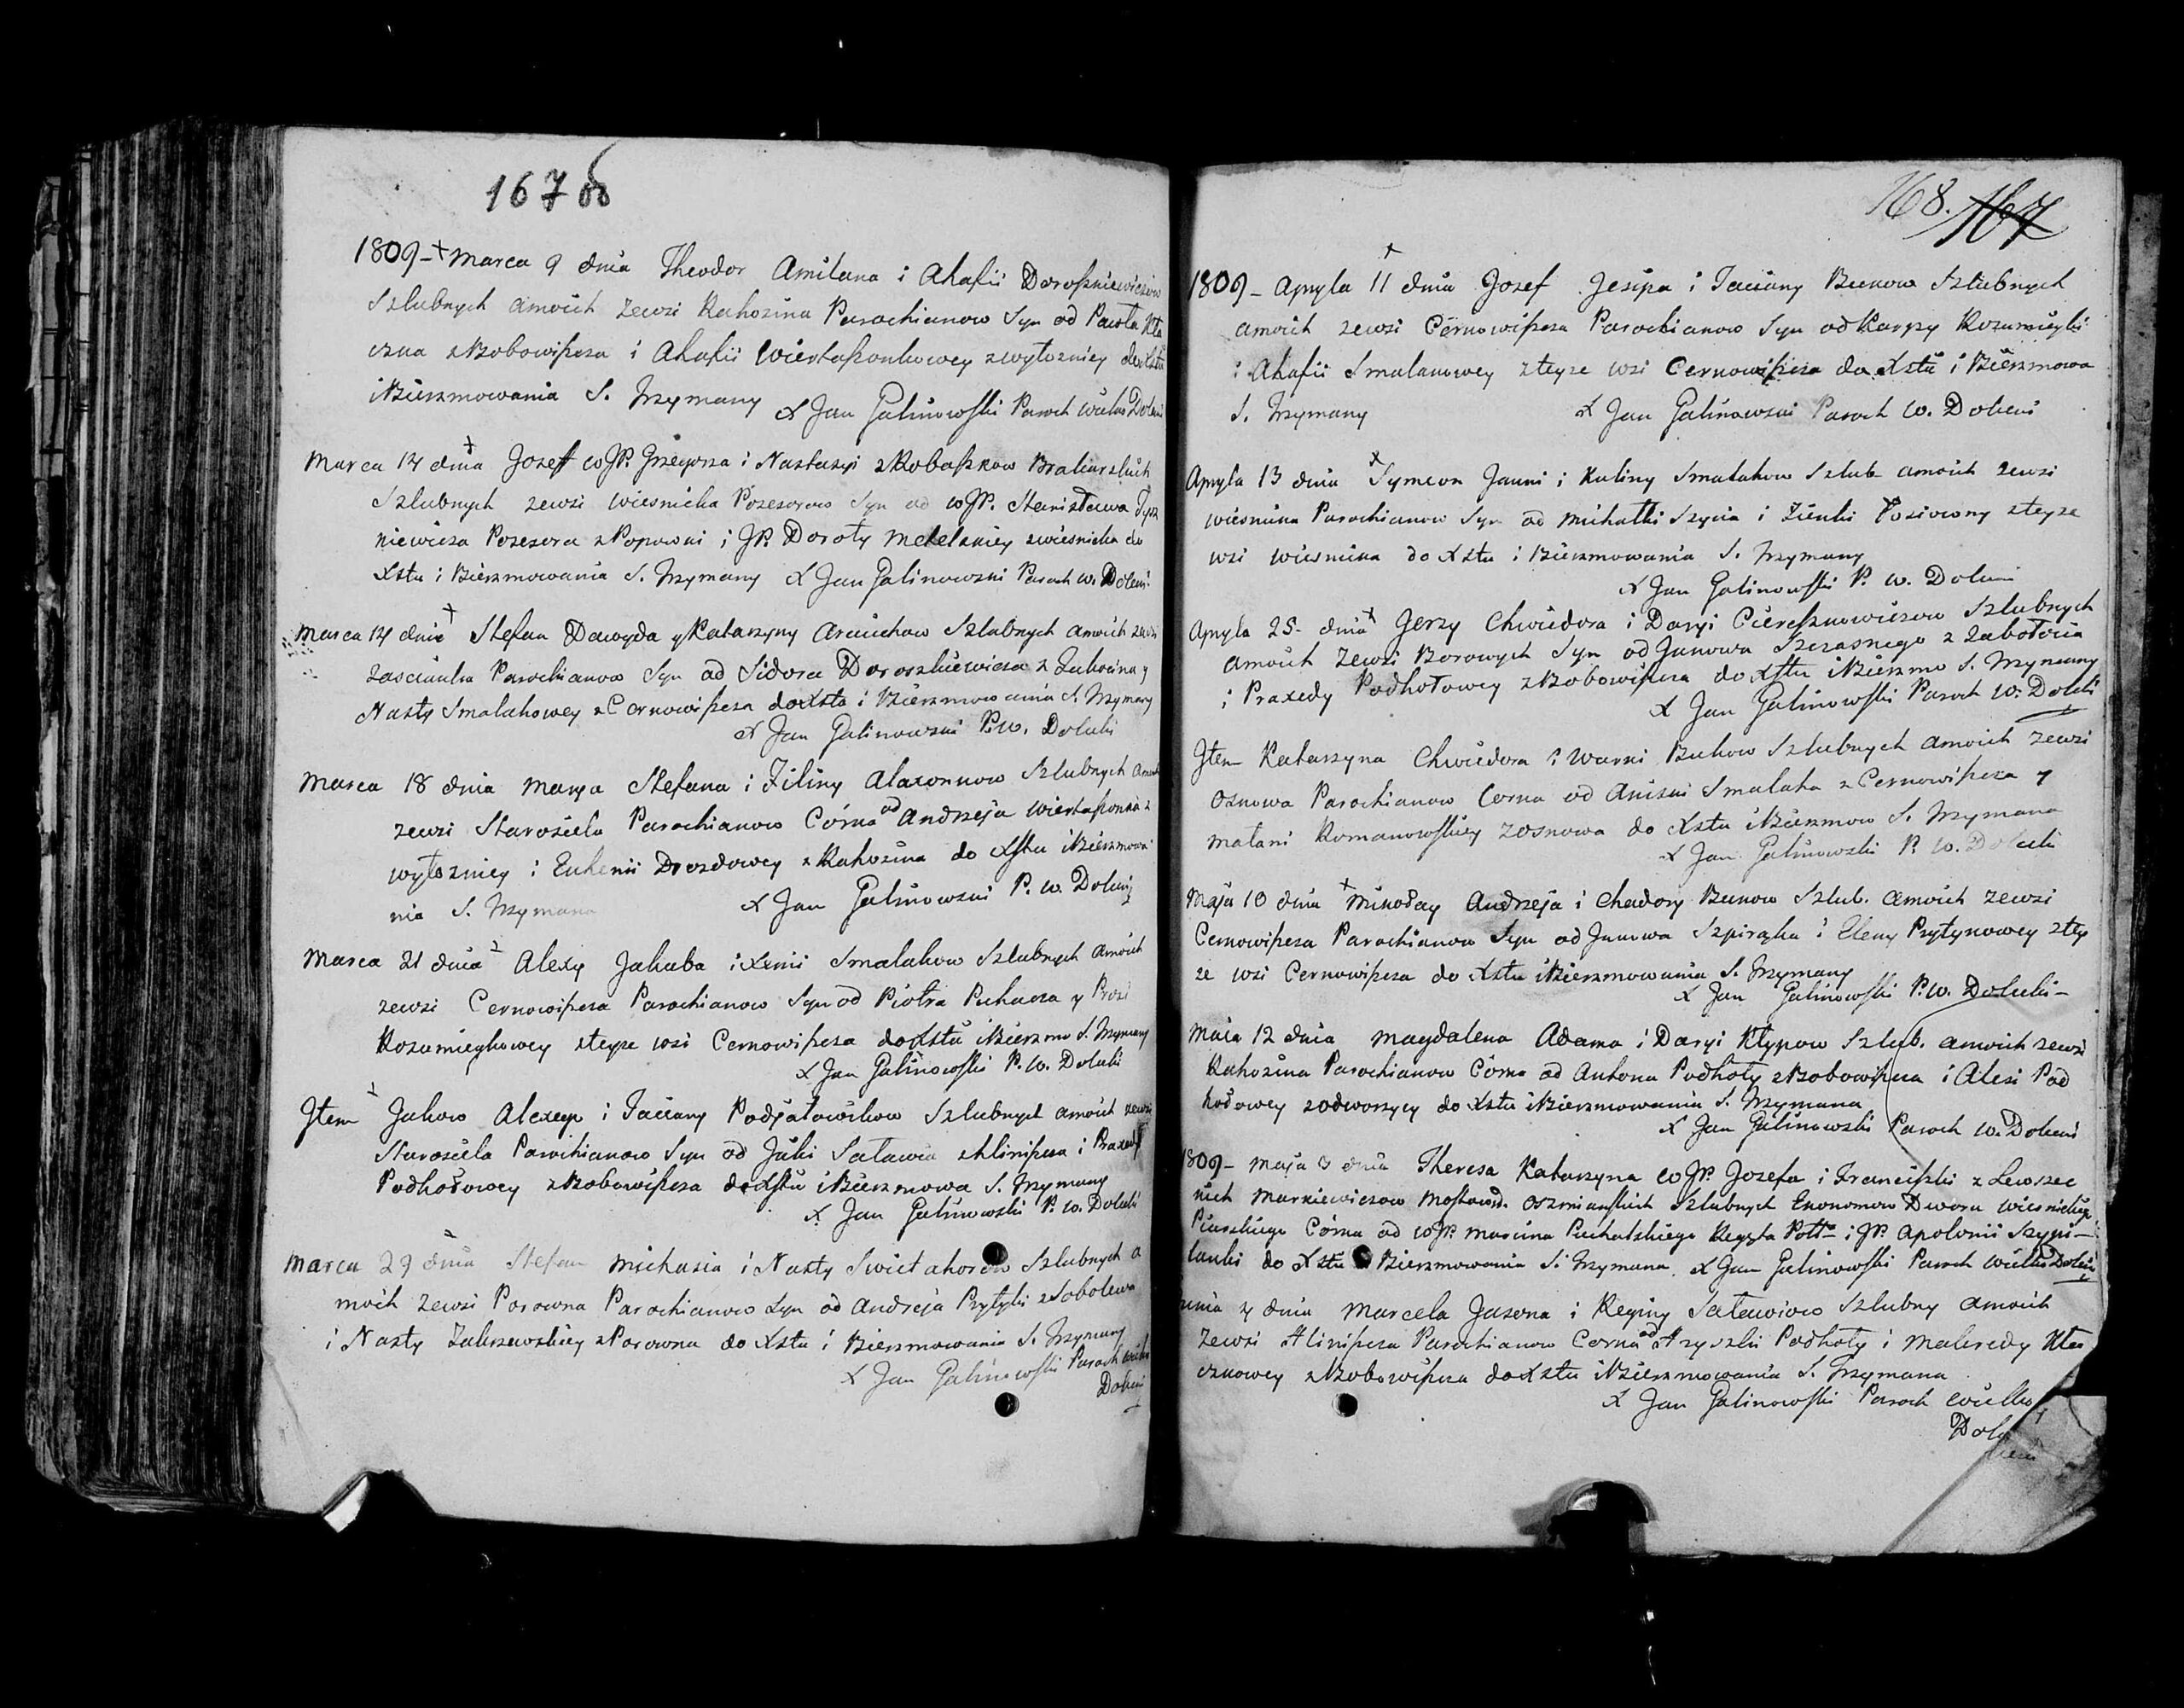 167 об
1809 - + Marca 9 dnia Theodor Amilana i Ahafii Doroszniewiczow
Szlubnych amoich zewsi Rahozina Parochianow Syn od Pawla Kla
czna zBobowiszcza i Ahafii Wiertaszonkowey zwytozniey do Xstu
iBierzmowania S. Trzymany X Jan Galinowski Paroch wielko Dolecki
Marca 14 dnia Josef WJP. Grzegorza i Nastazyi
Szlubnych zewsi wiesnicka Posesorow Syn od WJP. Stanisława Tysz
niewicza Posesora zPopowni i JP. Doroty zwiesnicka do
Xstu i Bierzmowania S. Trzymany X Jan Galinowski Paroch w. Dolecki
Marca 14 dnia Stefan Dawyda y Katarzyny Szlubnych amoich zewsi
zascianka Parochianow Syn od Sidora Doroszkiewicza z y
Nasty Smalahowey z Cernowiszcza do Xstu i Bierzmowania S. Trzymany
X Jan Galinowski P. W. Dolecki
Marca 18 dnia Marya Stefana i Filiny Alaxonnow Szlubnych amoich
zewsi Starosiela Parochianow Córka od Andrzeja Wiertaszonka z
wytozniey i Euhenii Drozdowey z Rahozina do Xstu iBierzmowa
nia S. Trzymana X Jan Galinowski P. W. Dolecki
Marca 21 dnia Alexy Jakuba i Xenii Smalahow Szlubnych amoich
zewsi Cernowiszcza Parochianow Syn od Piotra Puhacza y Prosi
Rozumieykowey zteyze wsi Cernowiszcza do Xstu iBierzmo S. Trzymany
X Jan Galinowski P. W. Dolecki
Jtem Jakow Alexeya i Taciany Szlubnych amoich zewsi
Starosiela Parochianow Syn od Julki zHliniszcza i Praxedy
Podhołowey zBobowiszcza do Xstu iBierzmowa S. Trzymany
X Jan Galinowski P. W. Dolecki
Marca 29 dnia Stefan Michasia i Nasty Swiet ahorow Szlubnych a
moich zewsi Porowna Parochianow Syn od Andrzeja Prytyki zSobolewa
i Nasty Zakrzewskiey zPorowna do Xstu i Bierzmowania S. Trzymany
X Jan Galinowski Paroch wielko
Dolecki
168. 167
1809 - Apryla 11 dnia Josef Jesipa i Taciany Bukow Szlubnych
amoich zewsi Cernowiszcza Parochianow Syn od Karpy Rozumieyki
i Ahafii Smalanowey zteyze wsi Cernowiszcza do Xstu i Bierzmowa
S. Trzymany X Jan Galinowski Paroch W. Dolecki
Apryla 13 dnia Symeon Janni i Kuliny Smalahow Szlub amoich zewsi
wiesnicka Parochianow Syn od Michałki Szycia i Zinki zteyze
wsi wiesnicka do Xstu i Bierzmowania S. Trzymany
X Jan Galinowski P. W. Dolecki
Apryla 25 dnia Jerzy Chwiedora i Daryi Ciereszkowiczow Szlubnych
amoich zewsi Borowych Syn od Janowa Szczasnego z Zabołocia
i Praxedy Podhołowey zBobowiszcza do Xstu iBierzmo S. Trzymany
X Jan Galinowski Paroch W. Dolecki
Jtem Katarzyna Chwiedora i Warki Bukow Szlubnych amoich zewsi
Osnowa Parochianow Corka od Aniski Smalaha z Cernowiszcza y
Matani Romanowskiey zosnowa do Xstu iBierzmow S. Trzymana
X Jan Galinowski P. W. Dolecki
Maja 10 dnia Mikołay Andrzeja i Chadory Bukow Szlub. amoich zewsi
Cernowiszcza Parochianow Syn od Janowa Szpirazka i Eleny Prytynowey ztey
ze wsi Cernowiszcza do Xstu iBierzmowania S. Trzymany
X Jan Galinowski P. W. Dolecki
Maja 12 dnia Magdalena Adama i Daryi Klypow Szlub. amoich zewsi
Rahozina Parochianow Córka od Antona Podhoły zBobowiszcza i Alesi Pod
hołowey zodworzycy do Xstu iBierzmowania S. Trzymana
X Jan Galinowski Paroch W. Dolecki
1809 - Maja 3 dnia Theresa Katarzyna WJP. Josefa i Franciszki z
nich Markiewiczow Oszmianskich Szlubnych Ekonomow Dworu wiesnickiego
Piarskiego Córka od WJP. Marcina Puchalskiego i JP. Apolonii Szysz-
lanki do Xstu i Bierzmowania S. Trzymana X Jan Galinowski Paroch wielko Dolecki
dnia Marcela Jasona i Reginy Szlubny amoich
zewsi Hliniszcza Parochianow Corka od Hryszki Podhoły i Makredy Kla
cznowey zBobowiszcza do Xstu iBierzmowania S. Trzymana
X Jan Galinowski Paroch wielko
Dolecki